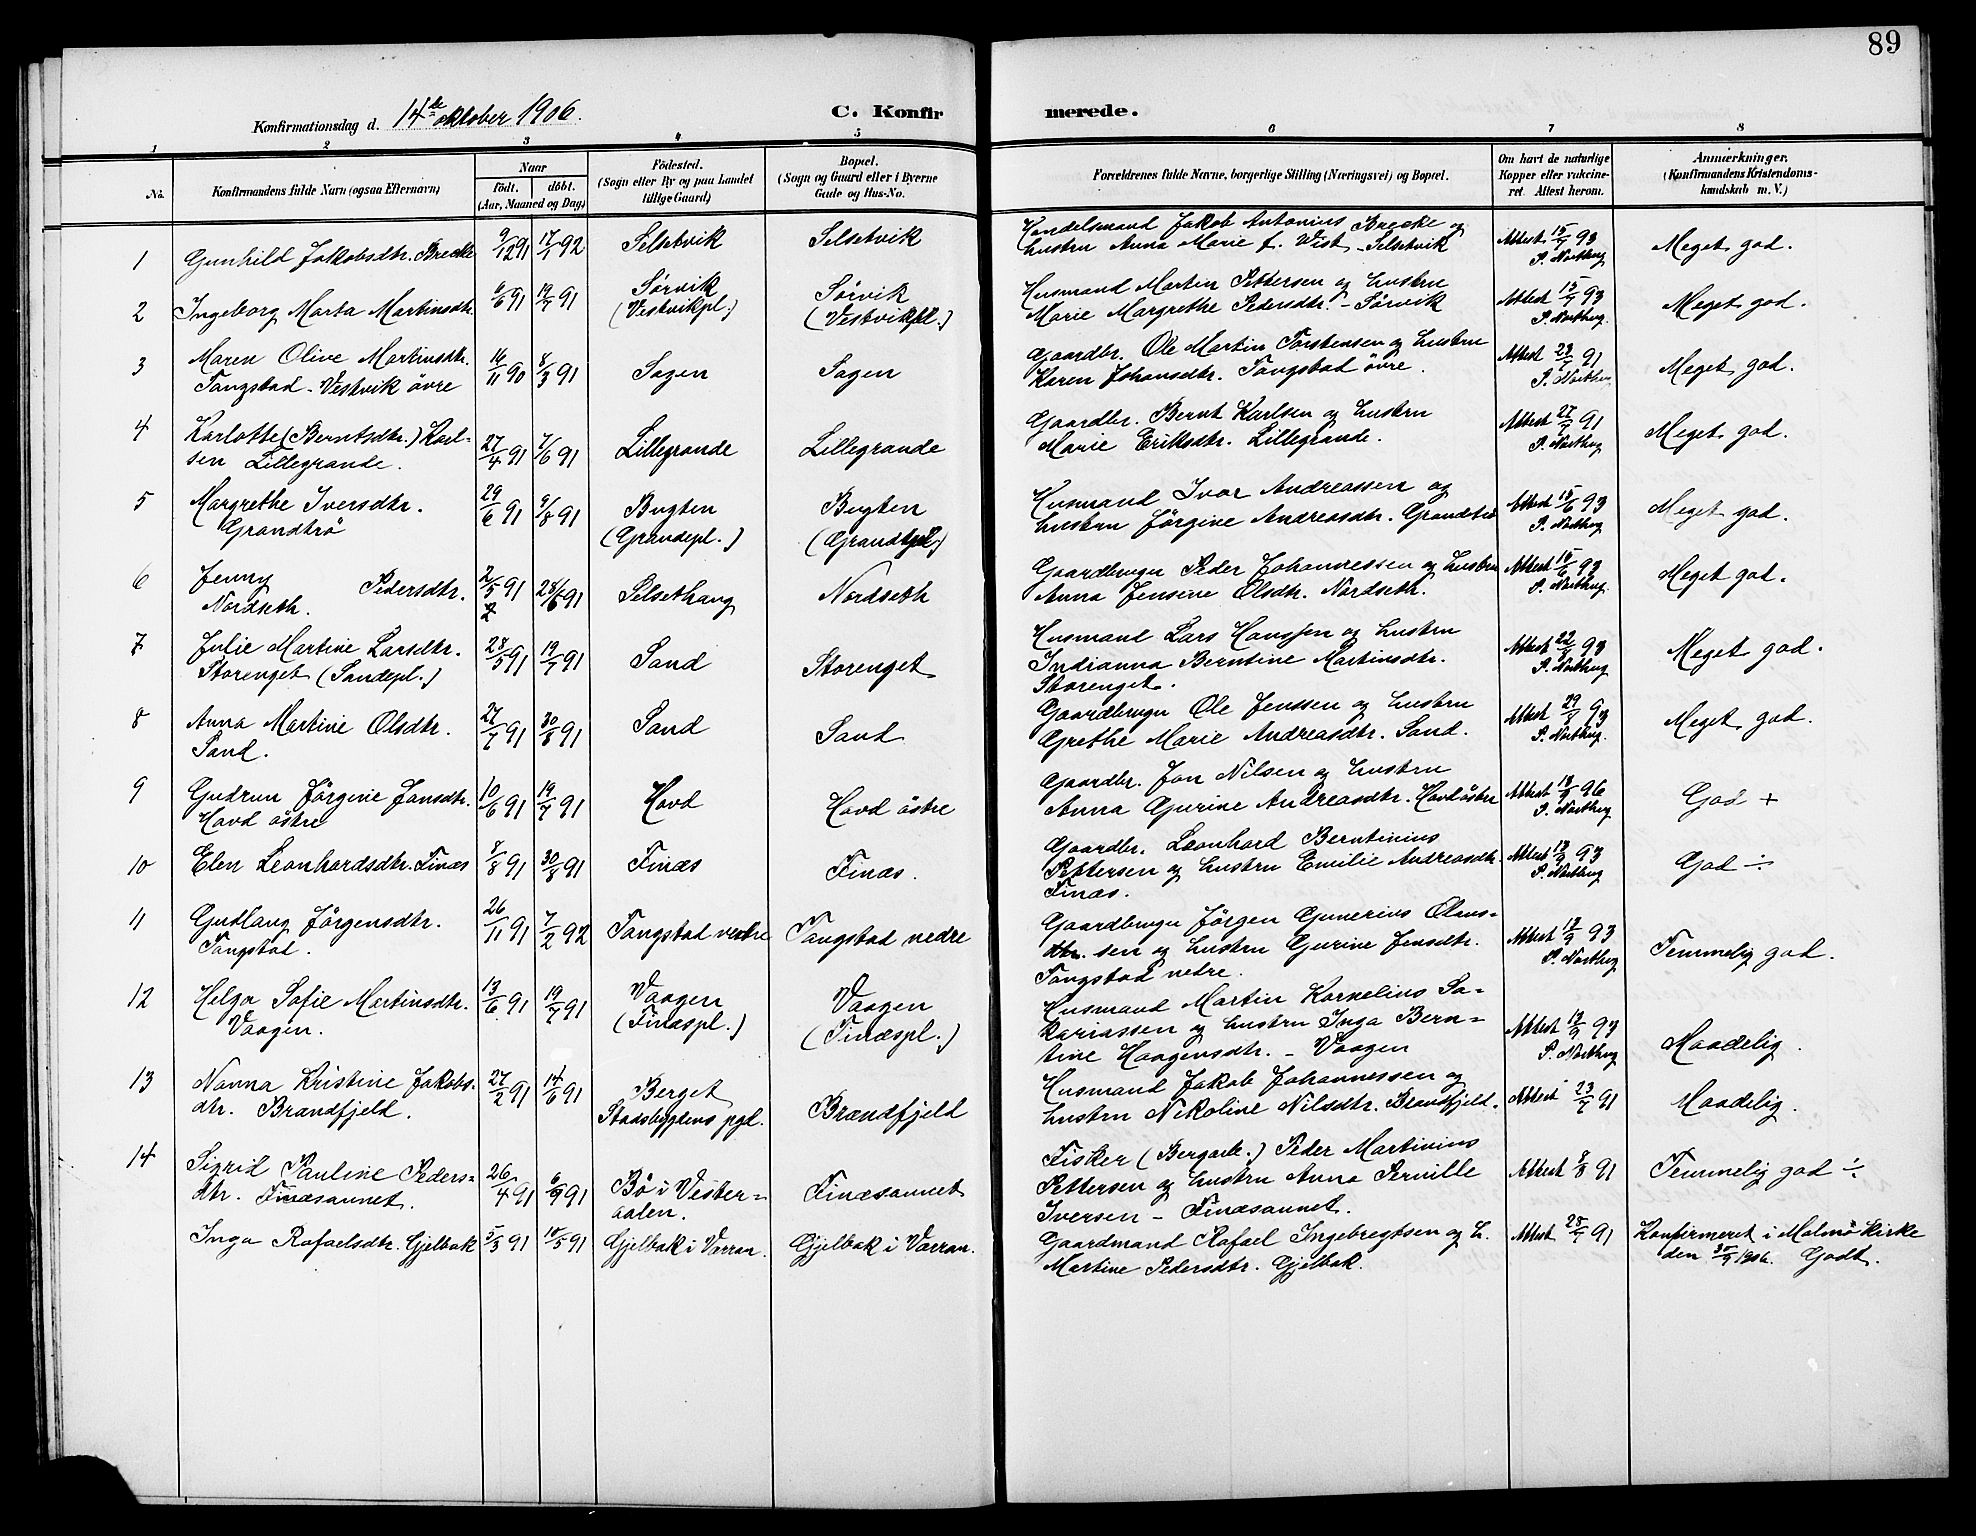 89
Konfirmationsdag d. 14de oktober 1906. C. Konfirmerede.
1 2 3 4 5 6 7 8
No. Konfirmandens fulde Navn (ogsaa Efternavn) Naar födt. döbt. (Aar, Maaned og Dag) Födested. (Sogn eller By og paa Landet tillige Gaard) Bopæl. (Sogn og Gaard eller i Byerne Gade og Hus-No. Forældrenes fulde Navne, borgerlige Stilling (Næringsvei) og Bopæl. Om havt de naturlige Kopper eller vakcineret. Attest herom. Anmærkninger. (Konfirmandens Kristendomskundskab m. V.)
1 Gunhild Jakobsdtr. Brekke 9/12 91 17/1 92 Selsetvik Selsetvik Handelsmand Jakob Antonius Brekke og
hustru Anna Marie f. Vist Selsetvik Attest 15/7 93 P. Northug Meget god.
2 Ingeborg Marta Martinsdtr. 6/6 91 19/7 91 Sørvik (Vestvikpl.) Sørvik (Vestvikpl.) Husmand Martin Pettersen og hustru
Marie Margrethe Pedersdtr. - Sørvik Attest 15/7 93 P. Northug. Meget god.
3 Maren Olive Martinsdtr. 16/11 90 8/3 91 Sagen Sagen Gaardbr. Ole Martin Torstensen og hustru
Tangstad - Vestvik övre Karen Johansdtr. Tangstad övre. Attest 23/7 91 P. Northug Meget god.
4 Karlotte (Berntsdtr.) Karl- 27/4 91 7/6 91 Lillegrande Lillegrande Gaardbr. Bernt Karlsen og hustru
sen Lillegrande. Marie Eriksdtr. Lillegrande. Attest 27/7 91 P. Northug Meget god.
5 Margrethe Iversdtr. 29/6 91 9/8 91 Bugten Bugten Husmand Ivar Andreassen og
Grandtrö (Grandepl.) hustru Jörgine Andreasdtr. Grandtrö Attest 15/6 93 P. Northug Meget god.
6 Jenny Pedersdtr. 2/5 91 28/6 91 Selsethaug Nordseth Gaardbruger Peder Johannessen og hustru
Nordseth. Anna Jensine Olsdtr. Nordseth. Attest 15/6 93 P. Northug. Meget god.
7 Julie Martine Larsdtr. 28/5 91 19/7 91 Sand Storenget Husmand Lars Hanssen og hustru
Storenget (Sandepl.) Indianna Berntine Martinsdtr.
Storenget. Attest 22/8 93 P. Northug Meget god.
8 Anna Martine Olsdtr. 27/7 91 30/8 91 Sand Sand Gaardbruger Ole Jenssen og hustru
Sand. Grethe Marie Andreasdtr. Sand. Attest 29/8 93 P. Northug. Meget god.
9 Gudrun Jörgine Jonsdtr. 10/6 91 19/7 91 Hovd Hovd östre Gaardbr. Jon Nilsen og hustru
Hovd östre Anna Gurine Andreasdtr. Hovd östre Attest 12/9 96 P. Northug God +
10 Elen Leonhardsdtr. Finæs 7/8 91 30/8 91 Finæs Finæs. Gaardbr. Leonhard Berntinius
Pettersen og hustru Emilie Andreasdtr.
Finæs. Attest 12/9 93 P. Northug God ÷
11 Gudlaug Jörgensdtr. 26/11 91 7/2 92 Tangstad nedre Tangstad nedre Gaardbruger Jörgen Gunerius Olaus-
Tangstad. sen og hustru Gurine Jensdtr.
Tangstad nedre. Attest 12/9 93 P. Northug Temmelig god.
12 Helga Sofie Martinsdtr. 13/6 91 19/7 91 Vaagen (Finæspl.) Vaagen (Finæspl.) Husmand Martin Kornelius Sa-
Vaagen. kariassen og hustru Inga Bern-
tine Haagensdtr. - Vaagen Attest 12/9 93 P. Northug Maadelig.
13 Nanna Kristine Jakobs- 27/2 91 14/6 91 Berget Stadsbygdens pgl. Brandfjeld Husmand Jakob Johannessen og
dtr. Brandfjeld. hustru Nikoline Nilsdtr. Brandfjeld. Attest 23/7 91 Maadelig.
14 Sigrid Pauline Peders- 26/4 91 6/9 91 Bö i Vester- aalen. Finæsannet Fisker (Bergarb.) Peder Martinius
dtr. Finæsannet. Pettersen og hustru Anna Pernille
Iversen - Finæsannet. Attest 8/8 91 Temmelig god ÷
Inga Rafaelsdtr. Gjelbak 5/3 91 10/5 91 Gjelbak i Værran. Gjelbak i Værran. Gaardmand Rafael Ingebregtsen og h.
Martine Pedersdtr. Gjelbak. Attest 28/7 91 Konfirmeret i Malmö kirke
den 30/9 1906. Godt.